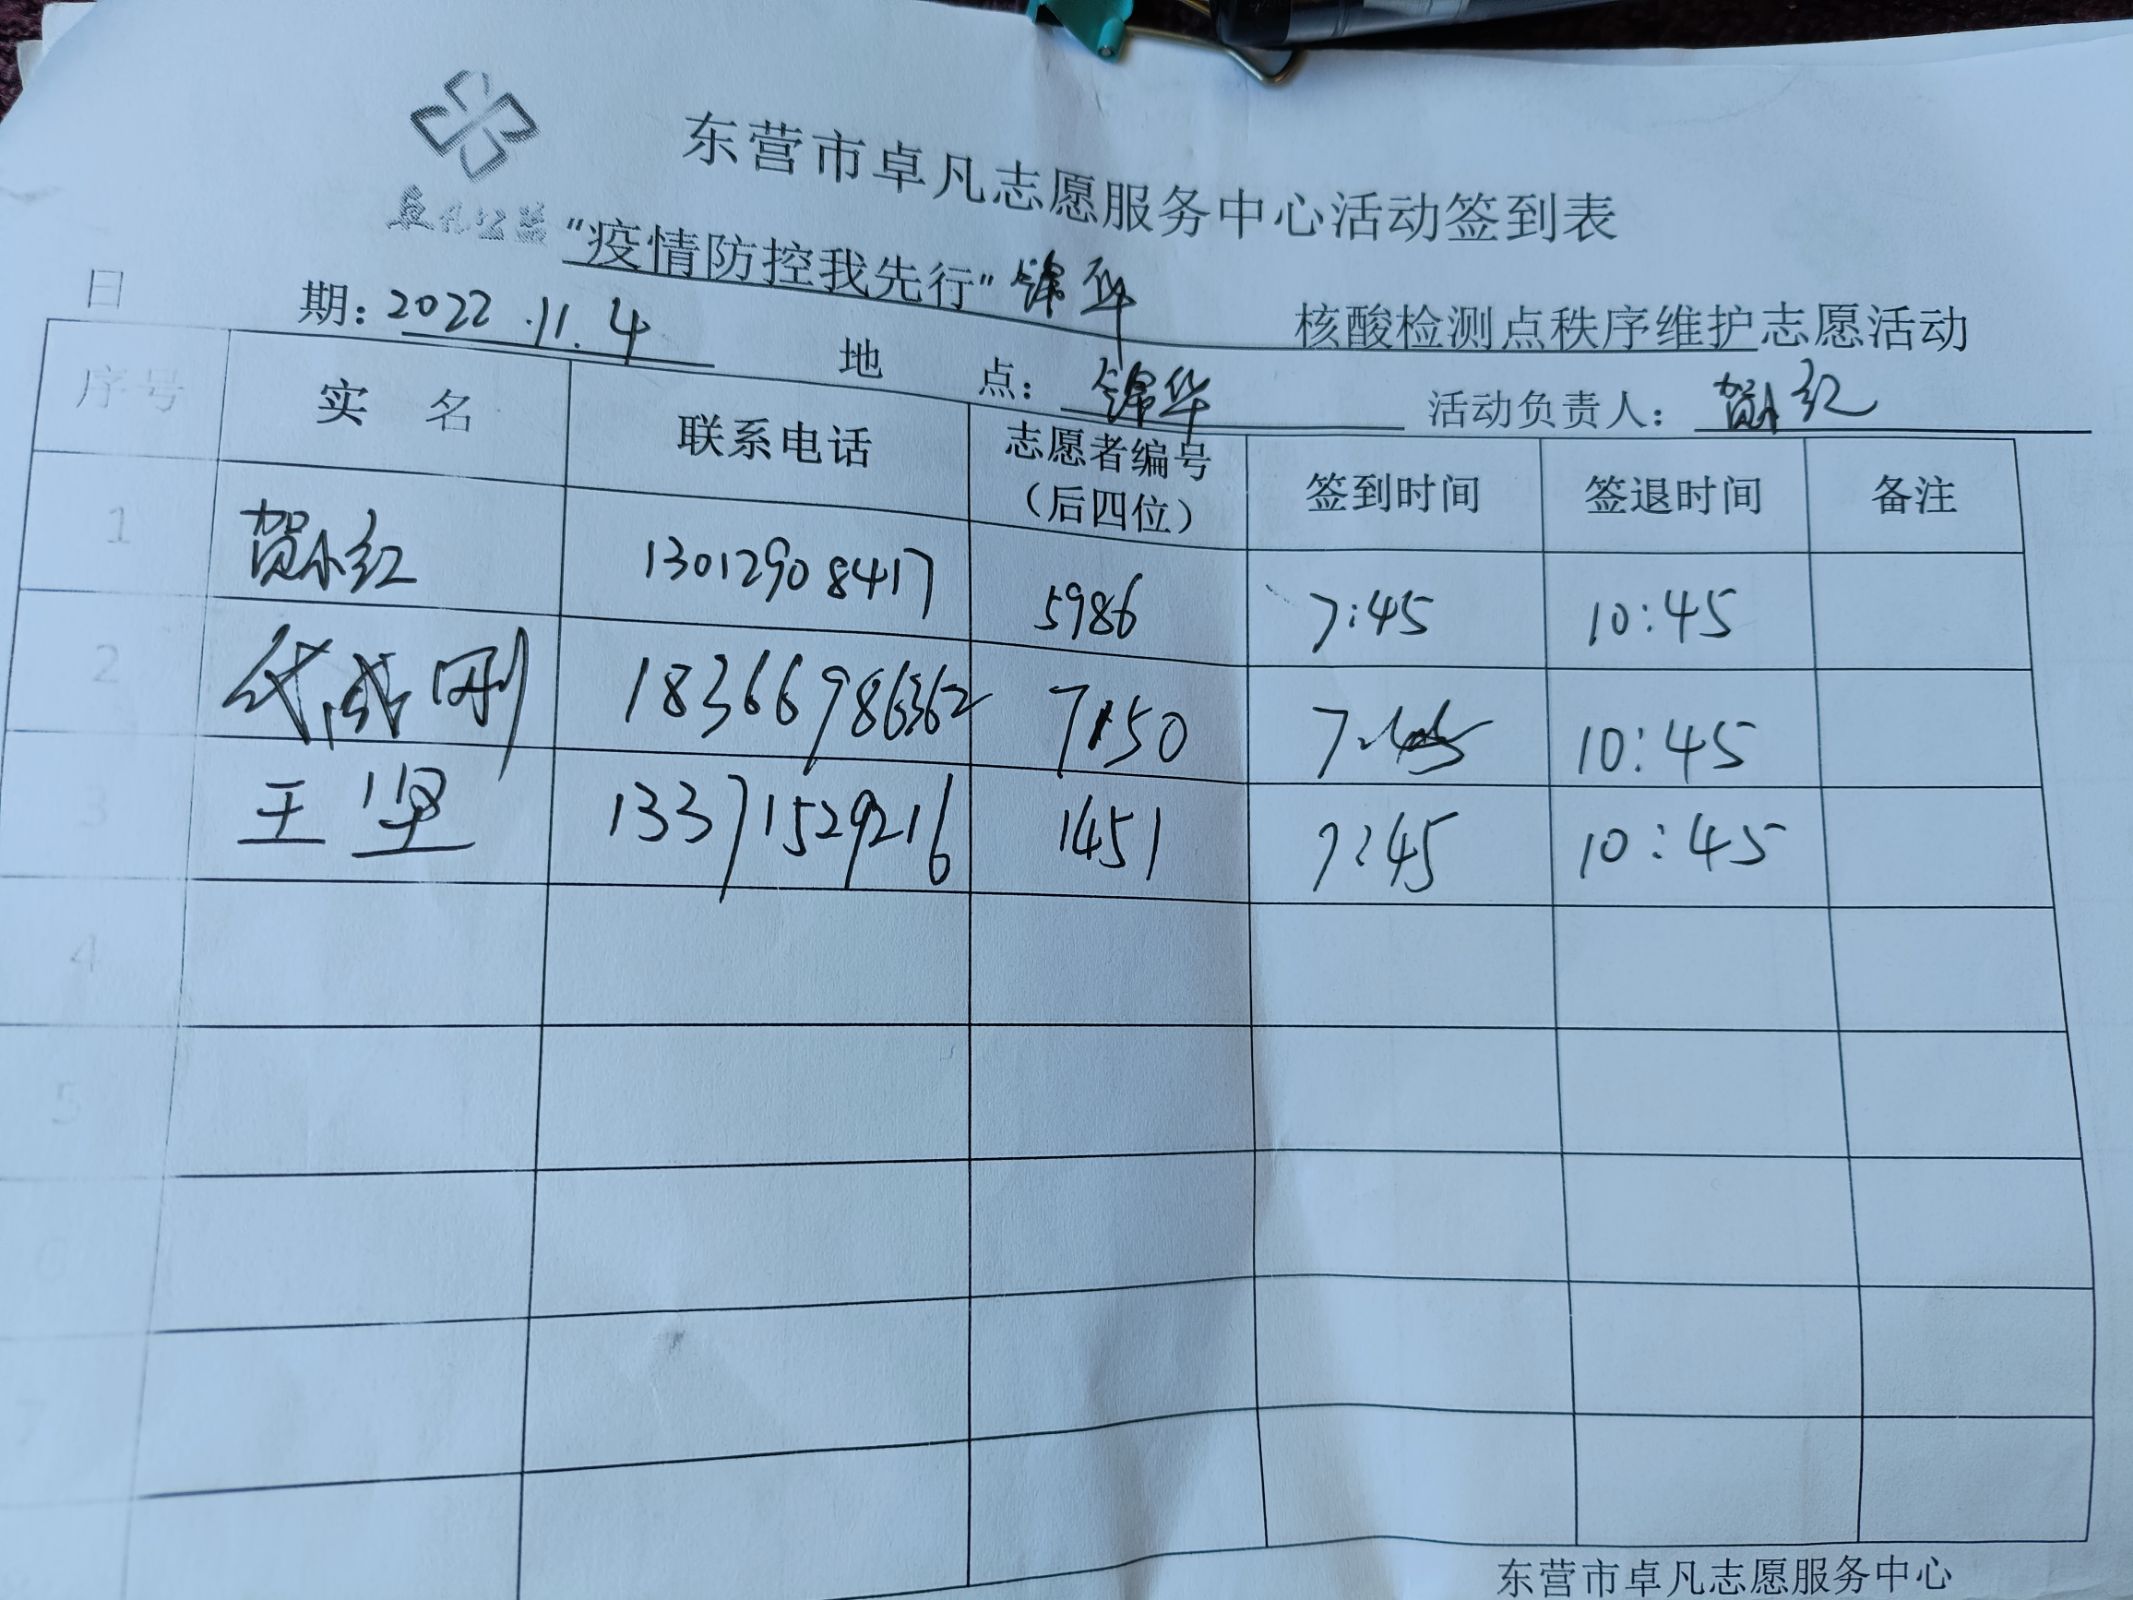 东营市卓凡志愿服务中心活动签到表
卓凡公益
“疫情防控我先行”锦华 核酸检测点秩序维护志愿活动
日 期：2022.11.4 地 点：锦华 活动负责人：贺小红
序号 实 名 联系电话 志愿者编号（后四位） 签到时间 签退时间 备注
1 贺小红 13012908417 5986 7:45 10:45
2 代成刚 18366986362 7150 7:45 10:45
3 王坚 13371529216 1451 7:45 10:45
4
5
6
7
东营市卓凡志愿服务中心